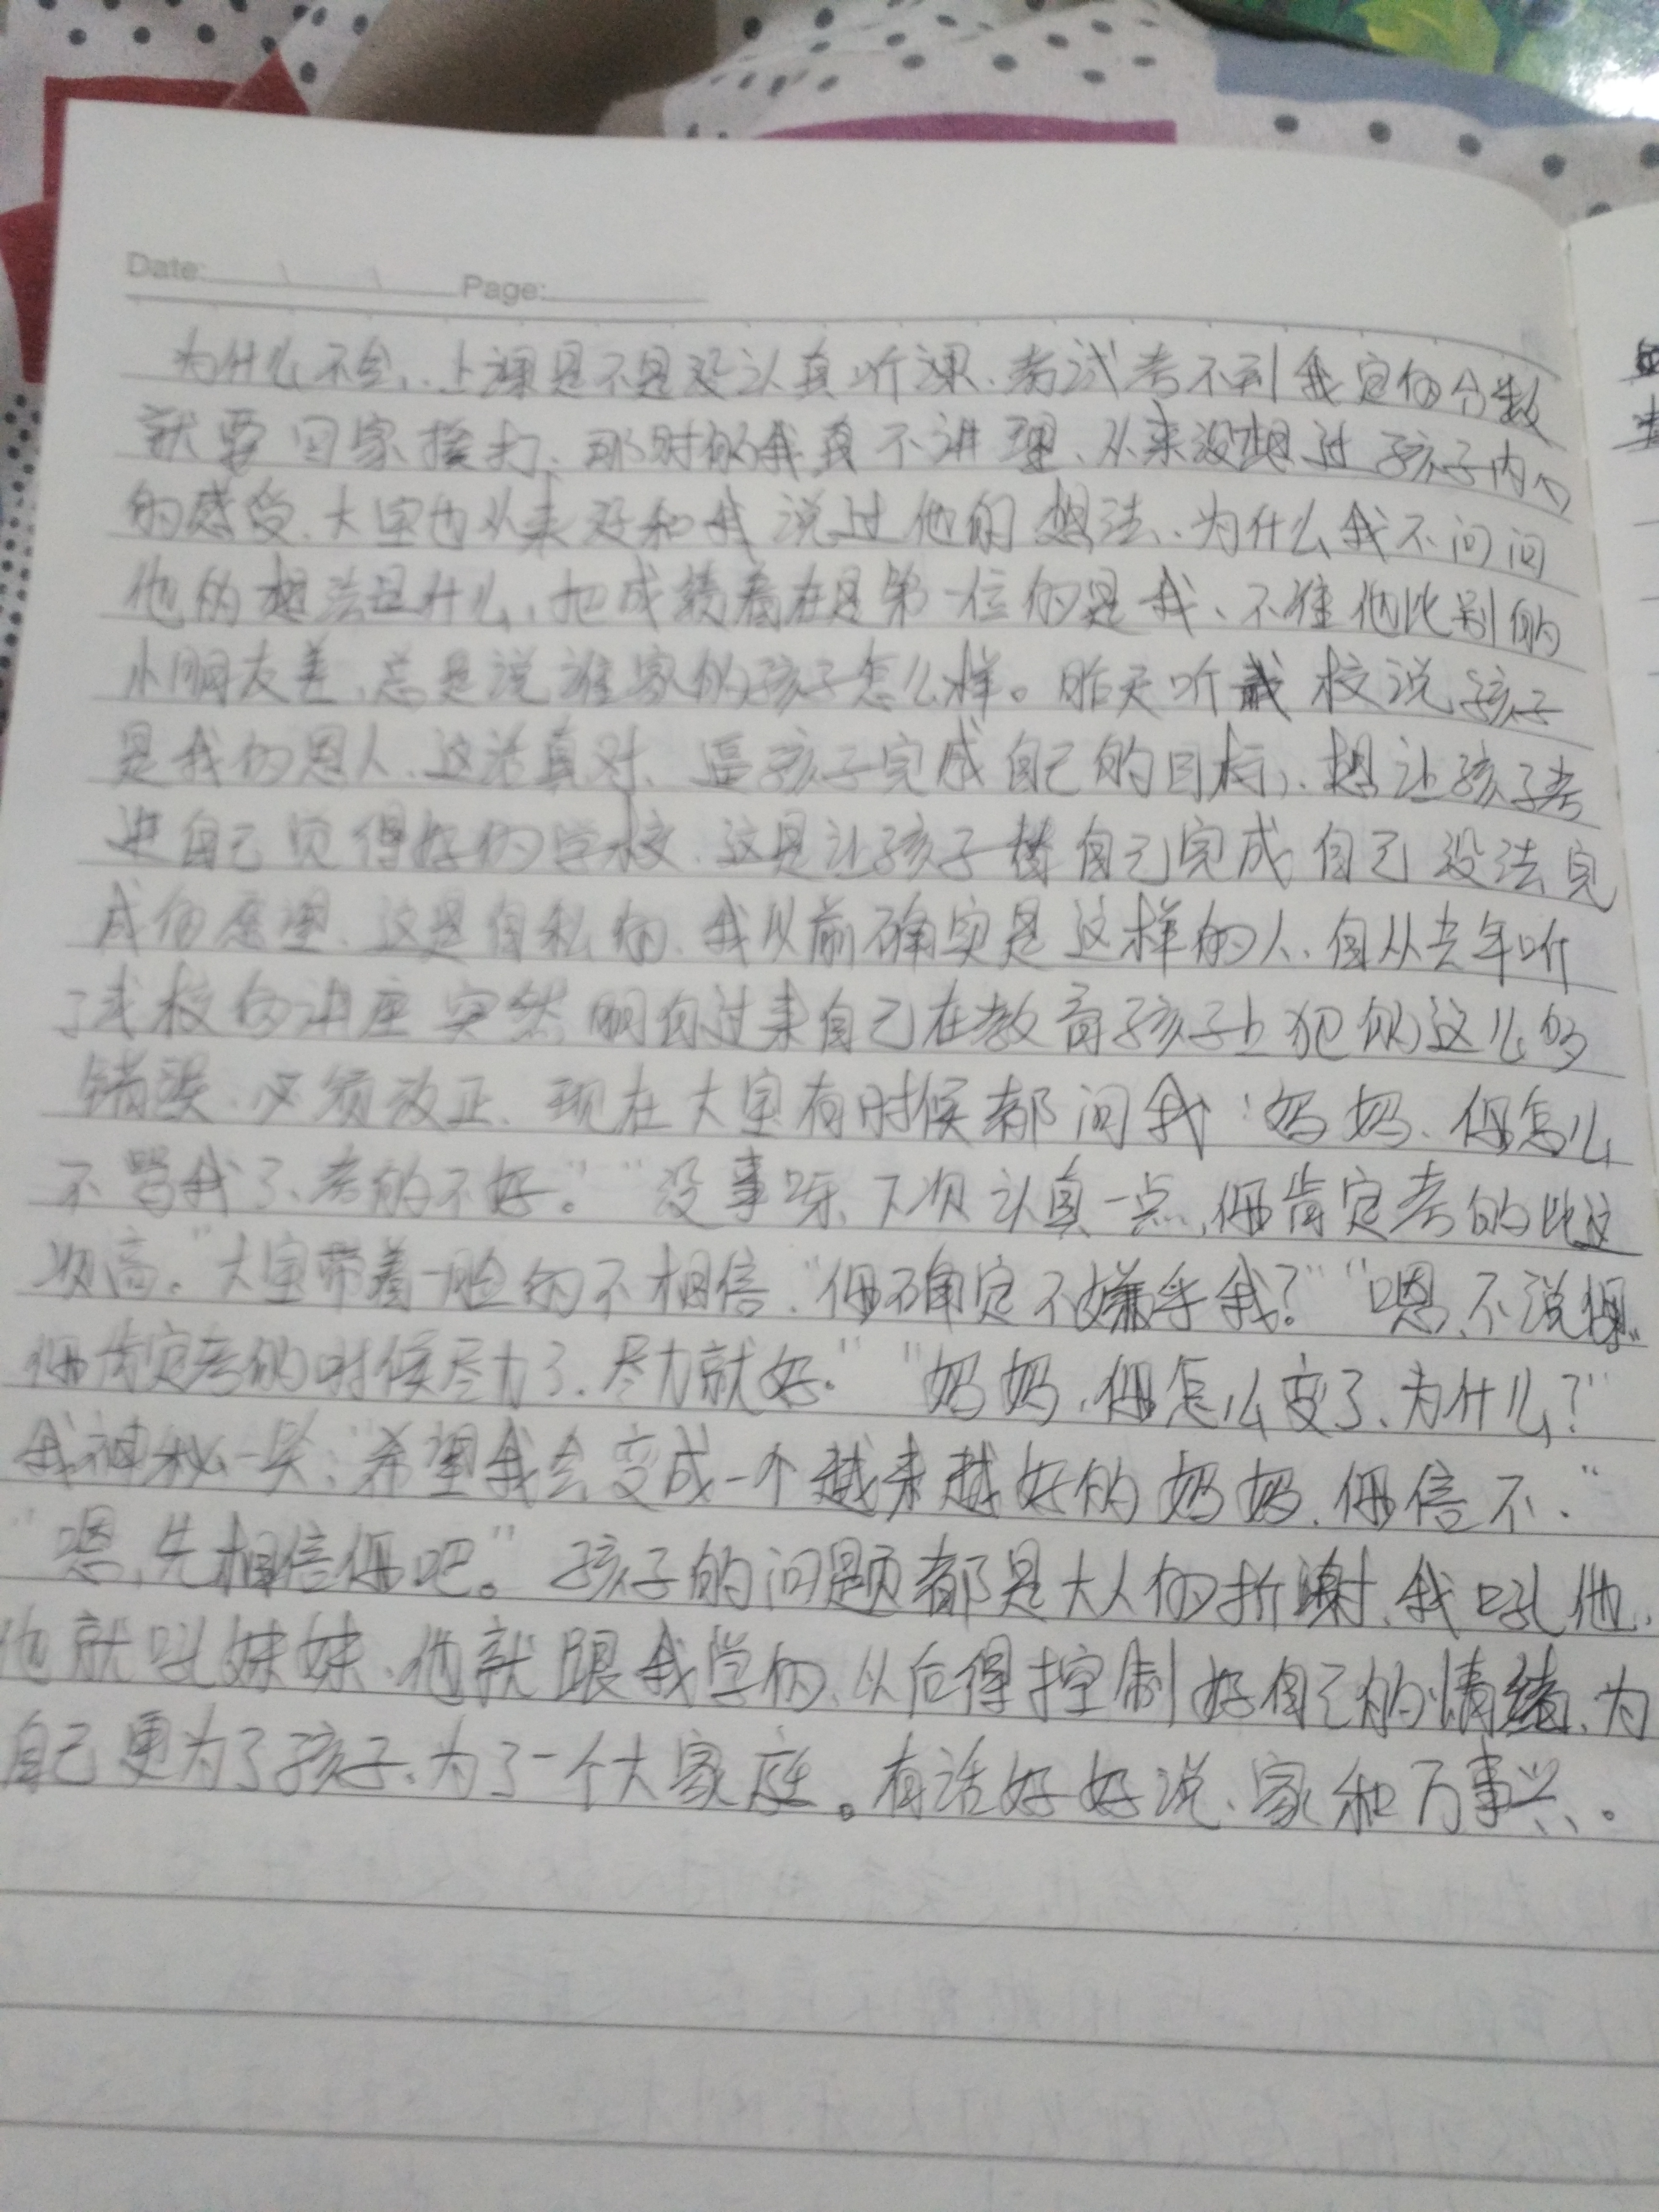 Date: Page:
为什么不会,.上课是不是没认真听课、考试考不到我定的分数
就要回家挨打、那时的我真不讲理、从来没想过孩子内心
的感受、大宝也从来没和我说过他的想法、为什么我不问问
他的想法是什么、把成绩看在是第一位的是我、不准他比别的
小朋友差、总是说谁家的孩子怎么样。昨天听戴校说孩子
是我的恩人、这话真对、逼孩子完成自己的目标、想让孩子考
进自己觉得好的学校、这是让孩子替自己完成自己没法完
成的愿望、这是自私的、我以前确实是这样的人、自从去年听
了戴校的讲座突然明白过来自己在教育孩子上犯的这么多
错误、必须改正、现在大宝有时候都问我:妈妈、你怎么
不骂我了、考的不好。""没事呀、下次认真一点、你肯定考的比这
次高。"大宝带着一脸的不相信、"你确定不嫌乎我?""嗯、不说你、
你肯定考的时候尽力了、尽力就好。""妈妈、你怎么变了、为什么?"
我神秘一笑:"希望我会变成一个越来越好的妈妈、你信不."
"嗯、先相信你吧。"孩子的问题都是大人的折谢、我吼他、
他就吼妹妹、他就跟我学的、以后得控制好自己的情绪、为
自己更为了孩子、为了一个大家庭。有话好好说、家和万事兴。